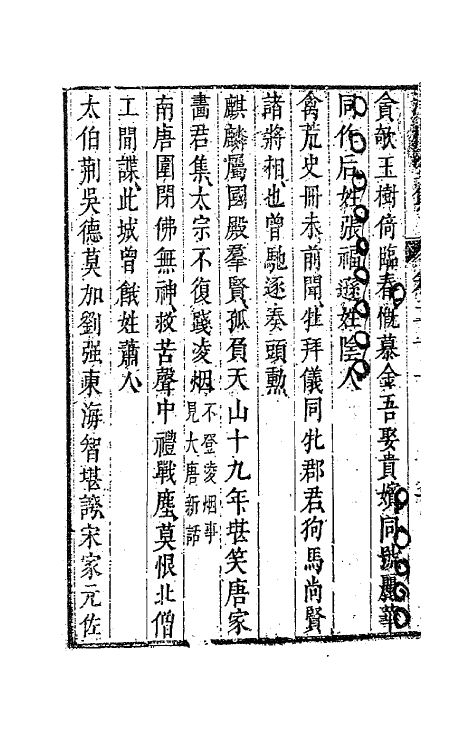 貪欹玉樹倚臨春慨慕金吾娶貴嬪同號麗華
同作后姓張禍遜姓陰人
禽荒史冊未前聞牡拜儀同牝郡君狗馬尚賢
諸將相也曾馳逐奏頭勲
麒麟屬國殿羣賢孤負天山十九年堪笑唐家
畫君集太宗不復踐凌烟不登凌烟事見大唐新話
南唐圍閉佛無神救苦聲中禮戰塵莫恨北僧
工間諜此城曾餓姓蕭人
太伯荆吳德莫加劉强東海智堪誇宋家元佐